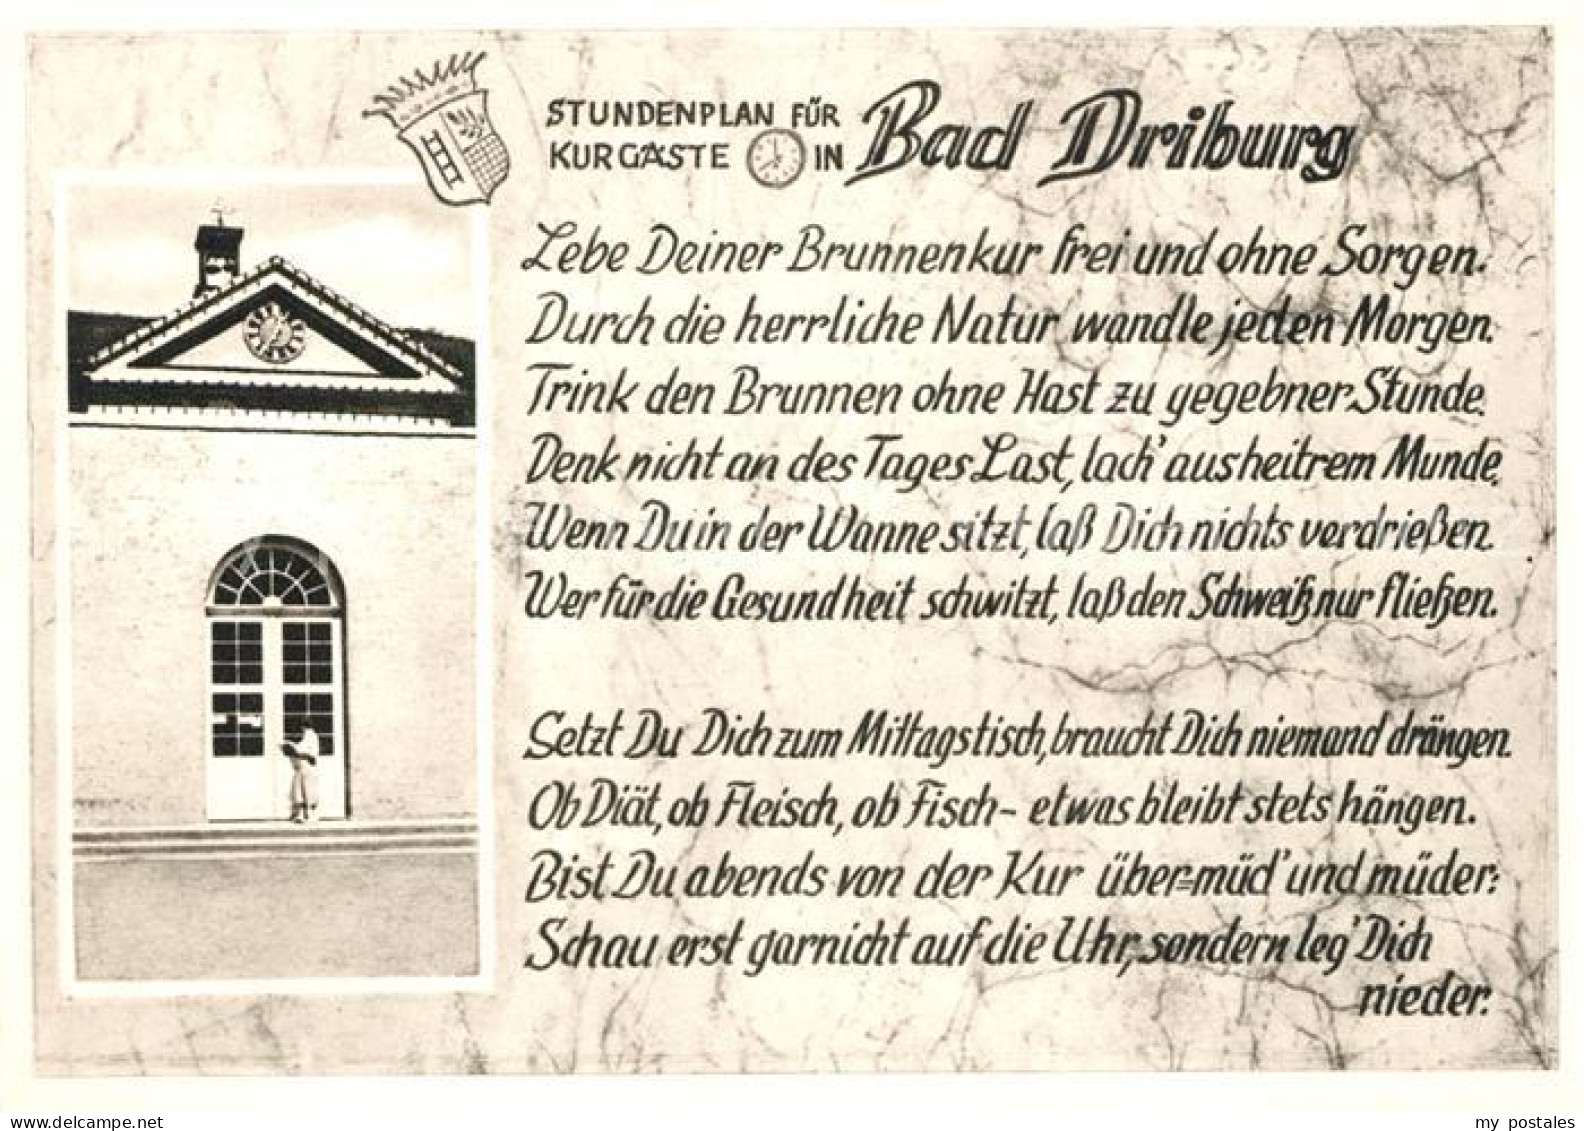 STUNDENPLAN FÜR
KURGÄSTE IN Bad Driburg
Lebe Deiner Brunnenkur frei und ohne Sorgen.
Durch die herrliche Natur wandle jeden Morgen.
Trink den Brunnen ohne Hast zu gegebner Stunde.
Denk nicht an des Tages Last, lach' aus heitrem Munde.
Wenn Du in der Wanne sitzt, laß Dich nichts verdrießen.
Wer für die Gesundheit schwitzt, laß den Schweiß nur fließen.
Setzt Du Dich zum Mittagstisch, braucht Dich niemand drängen.
Ob Diät, ob Fleisch, ob Fisch - etwas bleibt stets hängen.
Bist Du abends von der Kur über=müd' und müder:
Schau erst garnicht auf die Uhr, sondern leg' Dich
nieder.
delcampe.net
my_postales